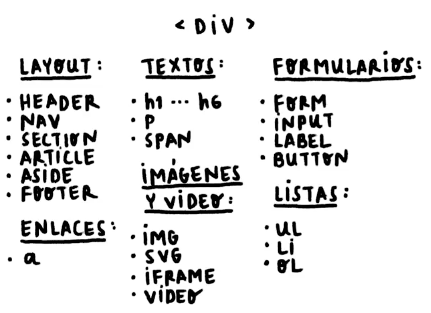 <DiV>
LAYOUT:
· HEADER
· NAV
· SECTION
· ARTICLE
· ASIDE
· FOOTER
ENLACES:
· a
TEXTOS:
· h1 ... h6
· P
· SPAN
iMÁGENES
Y ViDEO:
· iMG
· SVG
· iFRAME
· ViDEO
FORMULARiOS:
· FORM
· iNPUT
· LABEL
· BUTTON
LiSTAS:
· UL
· Li
· OL